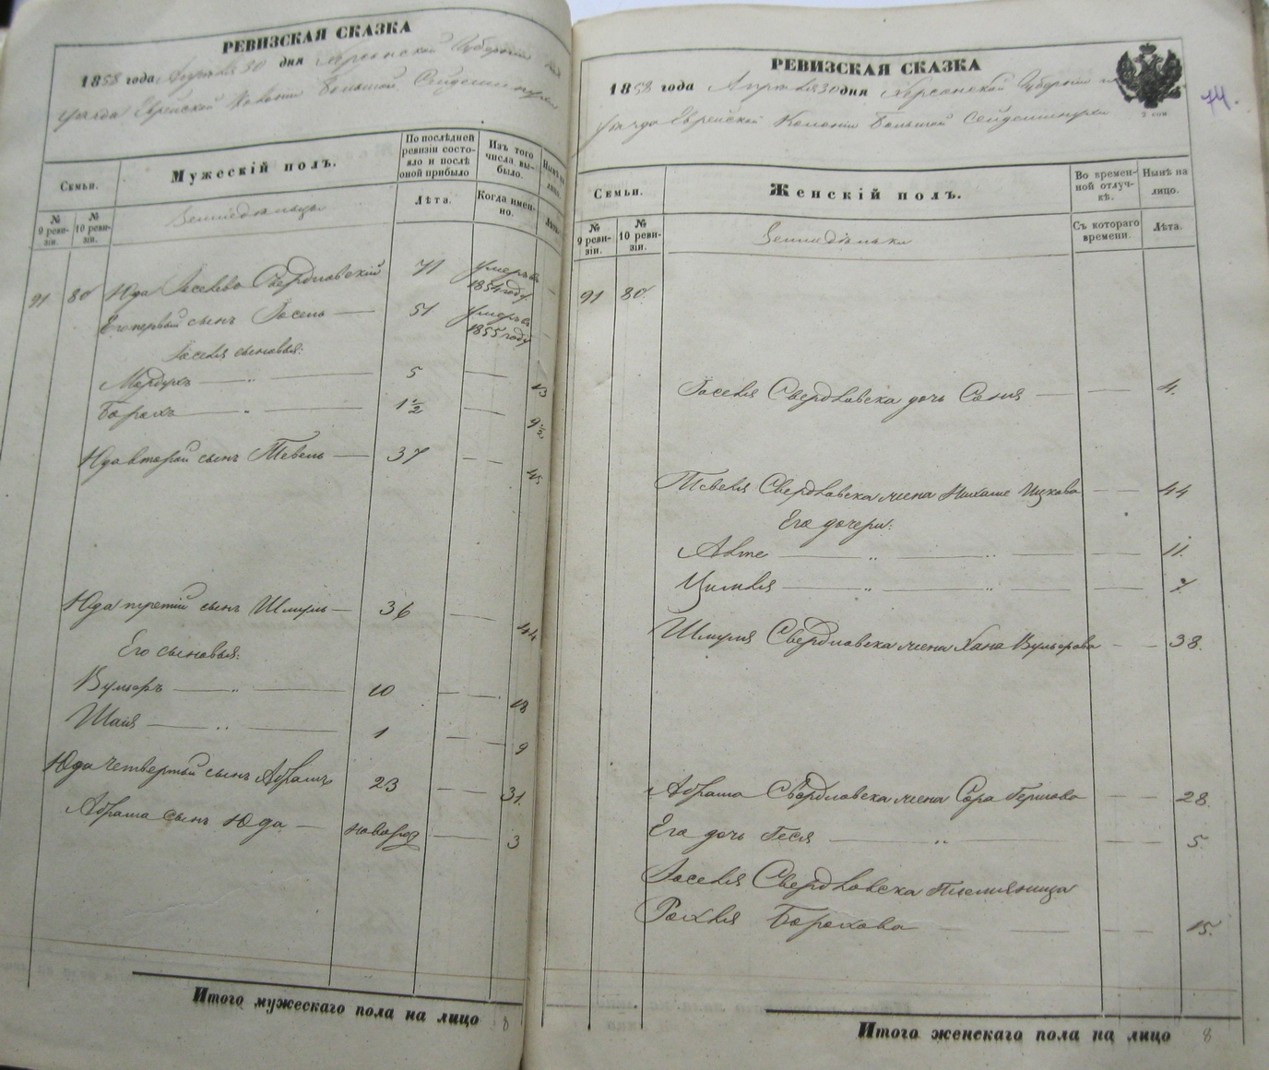 РЕВИЗСКАЯ СКАЗКА
1858 года Апреля 30 дня Херсонской Губернии
уезда Еврейской Колонии Большой Сейдеминухи
Семьи.
Мужескій полъ.
По послѣдней ревизіи состояло и послѣ оной прибыло
Изъ того числа, выбыло.
Нынѣ на лицо.
№ 9 ревизіи.
№ 10 ревизіи.
Земледѣльцы
Лѣта.
Когда именно.
Лѣта.
91 80 Юда Іоселевъ Свердловскій 71 умеръ въ 1854 году
Его первый сынъ Іосель 51 умеръ въ 1855 году
Іоселя сыновья:
Мордухъ 5 13
Борохъ 1½ 9½
Юда второй сынъ Тевель 37 45
Юда третій сынъ Шмуль 36 44
Его сыновья:
Вульфъ 10 18
Шая 1 9
Юда четвертый сынъ Абрамъ 23 31.
Абрама сынъ Юда новорож 3
Итого мужескаго пола на лицо 8
РЕВИЗСКАЯ СКАЗКА
1858 года Апреля 30 дня Херсонской Губерніи
уезда Еврейской Колоніи Большой Сейдеминухи
2 коп.
74.
Семьи.
Женскій полъ.
Во временной отлучкѣ.
Нынѣ на лицо.
№ 9 ревизіи.
№ 10 ревизіи.
Земледѣльки
Съ котораго времени.
Лѣта.
91 80.
Іоселя Свердловска дочь Соня 4.
Тевеля Свердловска жена Ицкова 44
Его дочери:
11.
Цивья 7
Шмуля Свердловска жена Хана Вульфова 38.
Абрама Свердловска жена Сора Гершова 28.
Его дочь Геся 5.
Іоселя Свердловска племянница
Рохля Борохова 15.
Итого женскаго пола на лицо 8